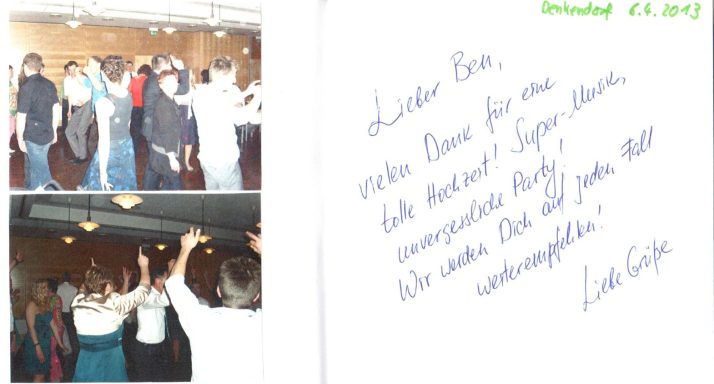 Denkendorf 6.4.2013
Lieber Ben,
vielen Dank für eine
tolle Hochzeit! Super-Musik,
unvergessliche Party!
Wir werden Dich auf jeden Fall
weiterempfehlen!
Liebe Grüße